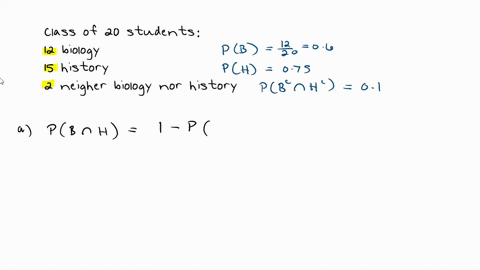 Class of 20 students:
12 biology P(B) = 12/20 = 0.6
15 history P(H) = 0.75
2 neigher biology nor history P(Bᶜ ∩ Hᶜ) = 0.1
a) P(B ∩ H) = 1 - P(